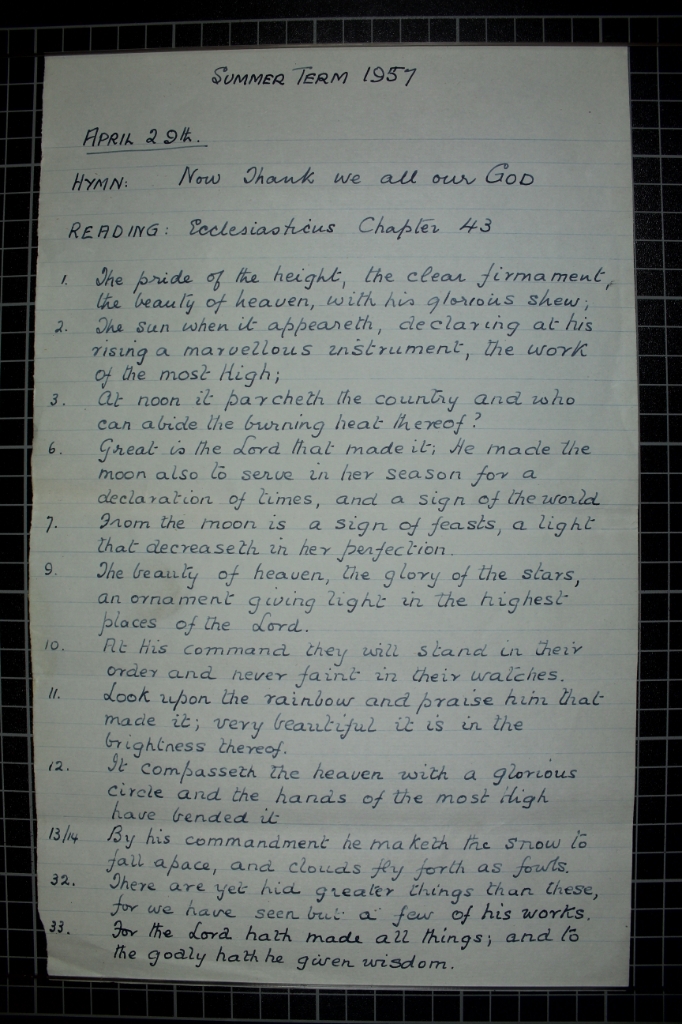 SUMMER TERM 1957
APRIL 29th.
HYMN: Now Thank we all our GOD
READING: Ecclesiasticus Chapter 43
1. The pride of the height, the clear firmament,
the beauty of heaven, with his glorious shew;
2. The sun when it appeareth, declaring at his
rising a marvellous instrument, the work
of the most High;
3. At noon it parcheth the country and who
can abide the burning heat thereof?
6. Great is the Lord that made it; He made the
moon also to serve in her season for a
declaration of times, and a sign of the world
7. From the moon is a sign of feasts, a light
that decreaseth in her perfection.
9. The beauty of heaven, the glory of the stars,
an ornament giving light in the highest
places of the Lord.
10. At His command they will stand in their
order and never faint in their watches.
11. Look upon the rainbow and praise him that
made it; very beautiful it is in the
brightness thereof.
12. It compasseth the heaven with a glorious
circle and the hands of the most High
have bended it
13/14 By his commandment he maketh the snow to
fall apace, and clouds fly forth as fowls.
32. There are yet hid greater things than these,
for we have seen but a few of his works.
33. For the Lord hath made all things; and to
the godly hath he given wisdom.